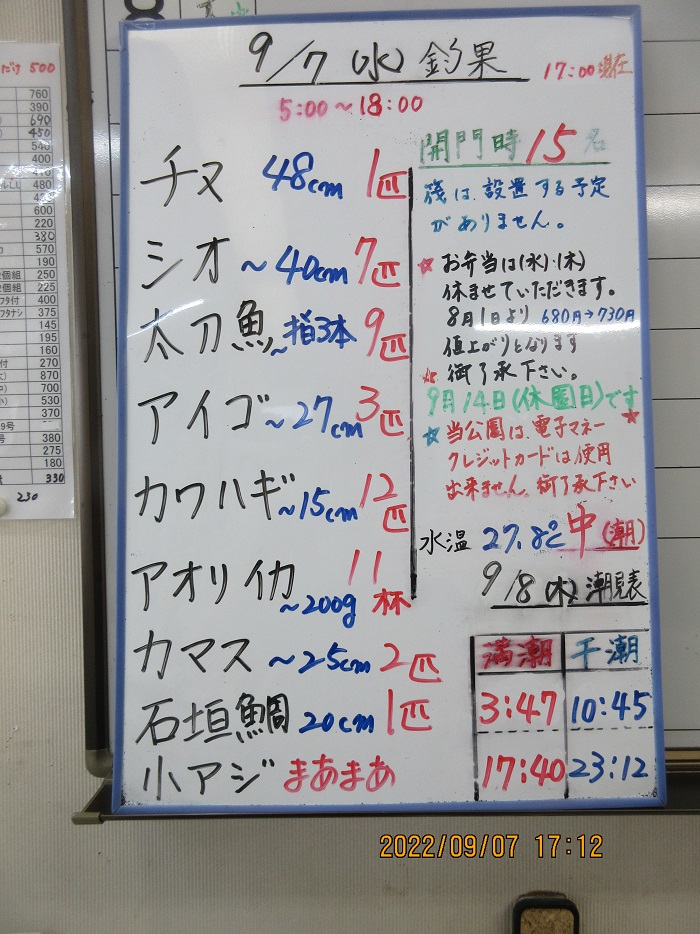 9/7(水)釣果
17:00現在
5:00~18:00
チヌ 48cm 1匹
シオ ~40cm 7匹
太刀魚 ~指3本 9匹
アイゴ ~27cm 3匹
カワハギ ~15cm 12匹
アオリイカ ~200g 11杯
カマス ~25cm 2匹
石垣鯛 20cm 1匹
小アジ まあまあ
開門時 15名
筏は、設置する予定
がありません。
☆お弁当は(水)・(木)
休ませていただきます。
8月1日より 680円→730円
値上がりとなります
☆御了承下さい。
9月14日(休園日)です
☆当公園は、電子マネー☆
クレジットカードは使用
出来ません。御了承下さい
水温 27.8℃ 中(潮)
9/8(木)潮見表
満潮 干潮
3:47 10:45
17:40 23:12
だけ 500
760
390
690
450
540
400
410
480
400
600
220
380
570
個組 190
個組 250
225
フタ付 400
フタナシ 375
145
195
160
付 270
870
700
530
370
9号
380
275
180
330
230
2022/09/07 17:12